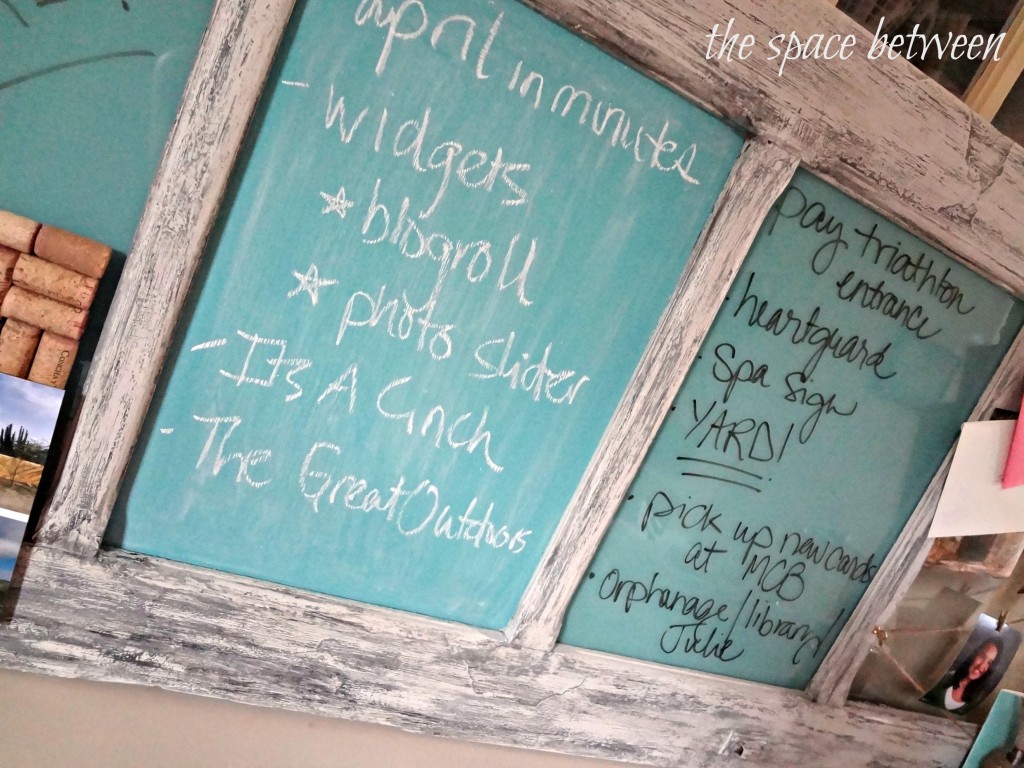 the space between
april in minutes
- widgets
☆ blogroll
☆ photo slider
- It's A Cinch
- The Great Outdoors
pay triathlon
entrance
· heartguard
· Spa Sign
· YARD!
· pick up new cards
at MCB
· Orphanage/library/
Julie